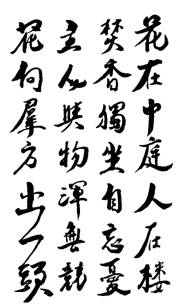 花在中庭人在楼
焚香獨坐自忘憂
主人與物渾無競
花向羣方出一頭